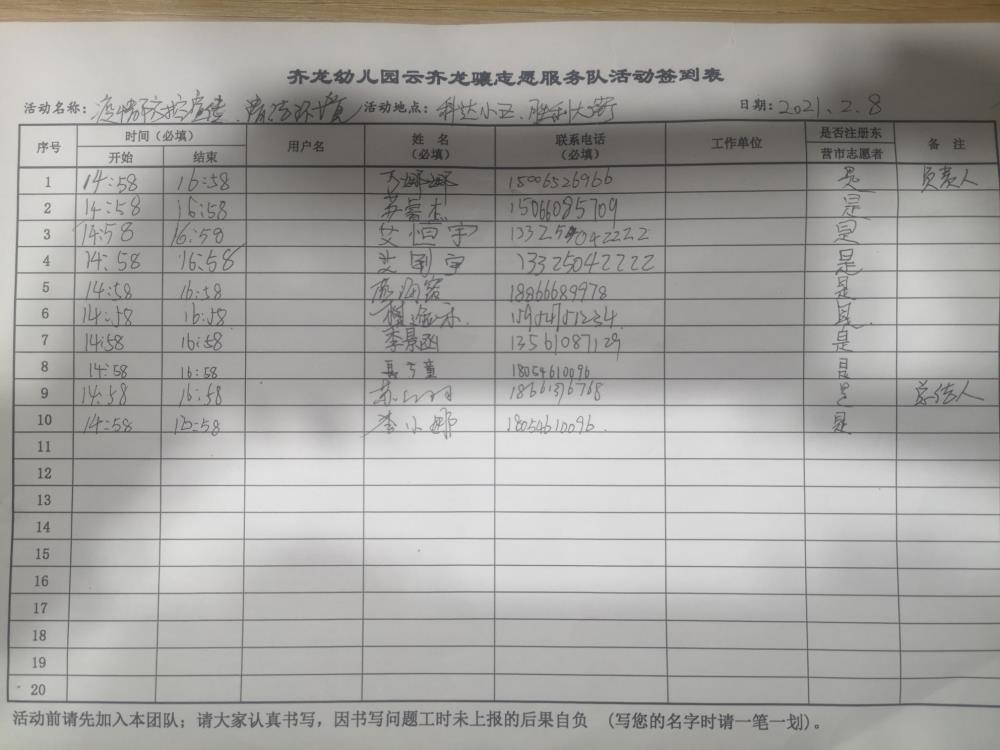 齐龙幼儿园云齐龙骧志愿服务队活动签到表
活动名称：疫情防控宣传、清洁环境 活动地点：科达小区、胜利大街 日期：2021.2.8
序号 时间（必填） 用户名 姓 名（必填） 联系电话（必填） 工作单位 是否注册东营市志愿者 备 注
开始 结束
1 14:58 16:58 15006526966 是 负责人
2 14:58 16:58 15066085709 是
3 14:58 16:58 艾恒宇 13325042222 是
4 14:58 16:58 艾国宇 13325042222 是
5 14:58 16:58 18866689978 是
6 14:58 16:58 15954751234 是
7 14:58 16:58 李晨函 13561087129 是
8 14:58 16:58 18054610096 是
9 14:58 16:58 苏 18661376768 是 总结人
10 14:58 16:58 李小娜 18054610096 是
11
12
13
14
15
16
17
18
19
20
活动前请先加入本团队；请大家认真书写，因书写问题工时未上报的后果自负 （写您的名字时请一笔一划）。